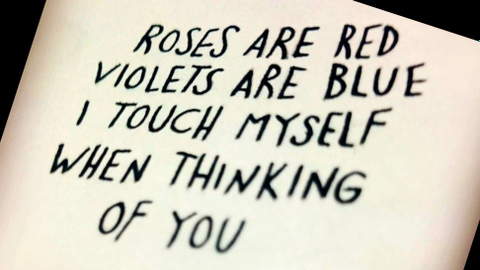 ROSES ARE RED
VIOLETS ARE BLUE
I TOUCH MYSELF
WHEN THINKING
OF YOU